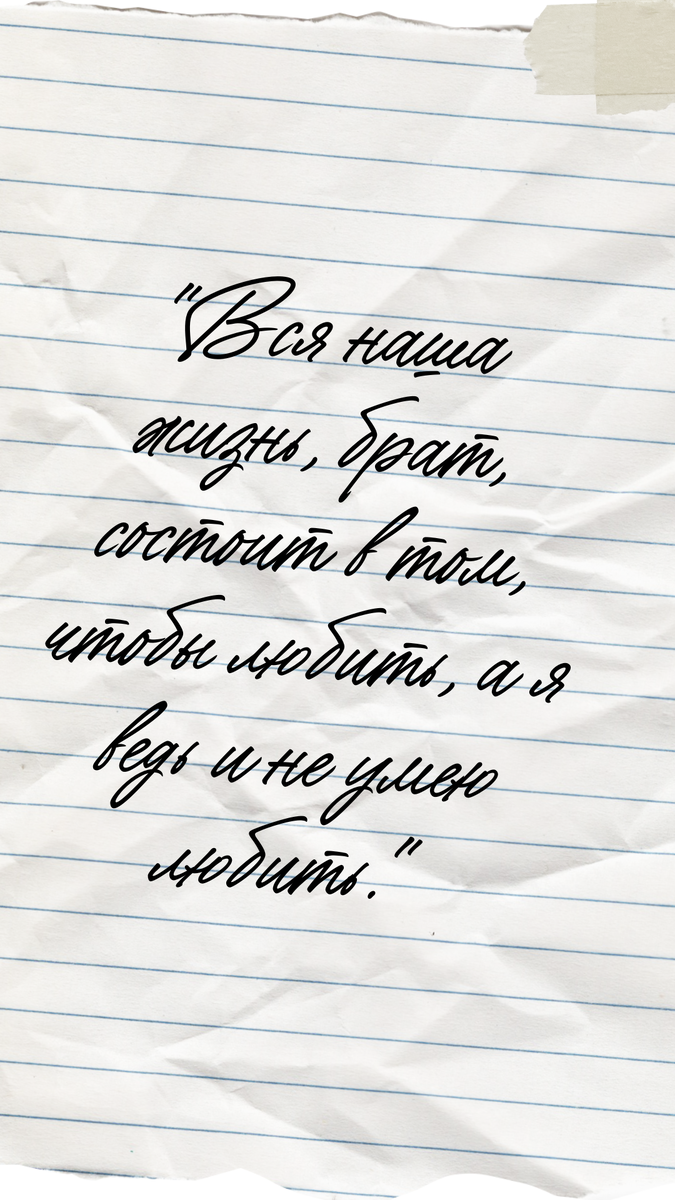 "Вся наша
жизнь, брат,
состоит в том,
чтобы любить, а я
ведь и не умею
любить."